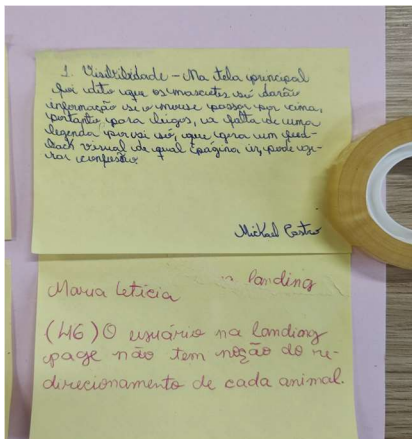 1. Visibilidade - Na tela principal
foi dito que os mascotes só darão
informação se o mouse passar por cima,
portanto, para leigos, a falta de uma
legenda por si só, que gera um feed-
back visual de qual página ir, pode ge-
rar confusão.
Mickael Castro
landing
Maria Letícia
(H6) O usuário na landing
page não tem noção do re-
direcionamento de cada animal.